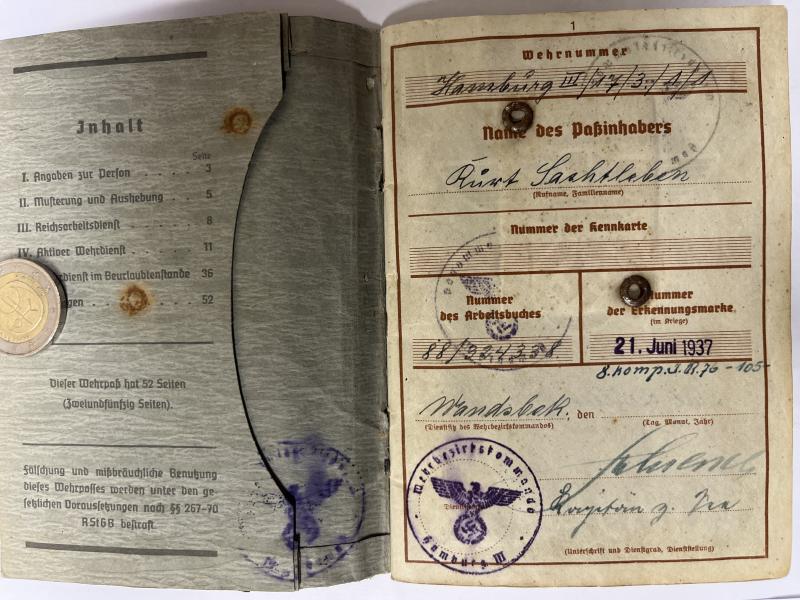 Inhalt
Seite
I. Angaben zur Person . . . . . 3
II. Musterung und Aushebung . . . . 5
III. Reichsarbeitsdienst . . . . . 8
IV. Aktiver Wehrdienst . . . . . 11
dienst im Beurlaubtenstande 36
gen . . . . . 52
Dieser Wehrpaß hat 52 Seiten
(Zweiundfünfzig Seiten).
Fälschung und mißbräuchliche Benutzung
dieses Wehrpasses werden unter den ge-
setzlichen Voraussetzungen nach §§ 267-70
RStGB bestraft.
1
Wehrnummer
Hamburg III/17/3/1/1
Name des Paßinhabers
Kurt Sachtleben
(Rufname, Familienname)
Nummer der Kennkarte
Nummer
des Arbeitsbuches
88/224358
Nummer
der Erkennungsmarke
(im Kriege)
21. Juni 1937
8. Komp. J.R. 76 - 105-
Wandsbek, den
(Dienstsitz des Wehrbezirkskommandos)
(Tag, Monat, Jahr)
Wehrbezirkskommando
Hamburg III
Kapitän z. See
(Unterschrift und Dienstgrad, Dienststellung)